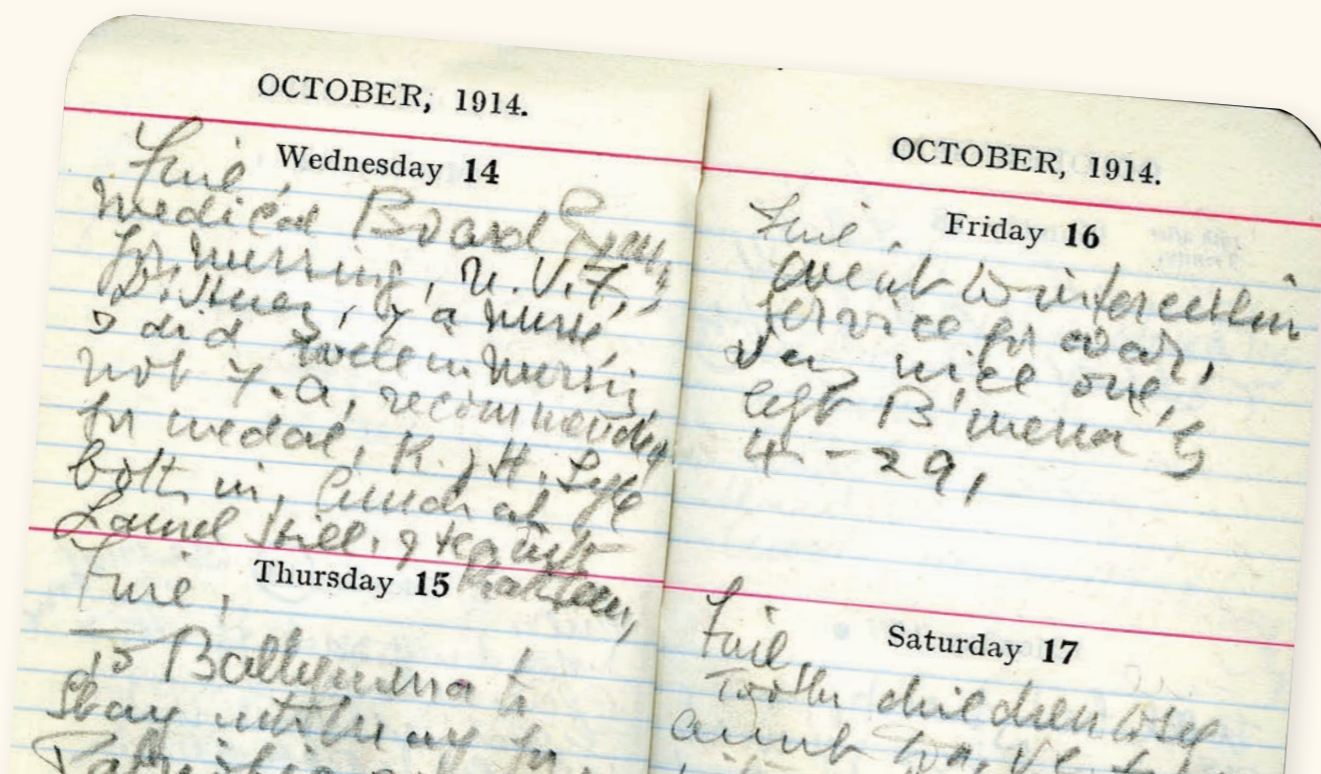 OCTOBER, 1914.
Wednesday 14
Fine,
Medical Board Exam,
for nursing, U.V.F.,
Dr. Huey, & a nurse,
I did well in nursing,
not F.A, recommended
for medal, K. & H. Lyle
both in, lunch at
Laurel Hill, & tea with
Thursday 15
Fine,
To Ballymena to
stay with
OCTOBER, 1914.
Friday 16
Fine,
went to intercession
service for war,
very nice one,
left B'mena by
4-29,
Saturday 17
Fine,
Took children